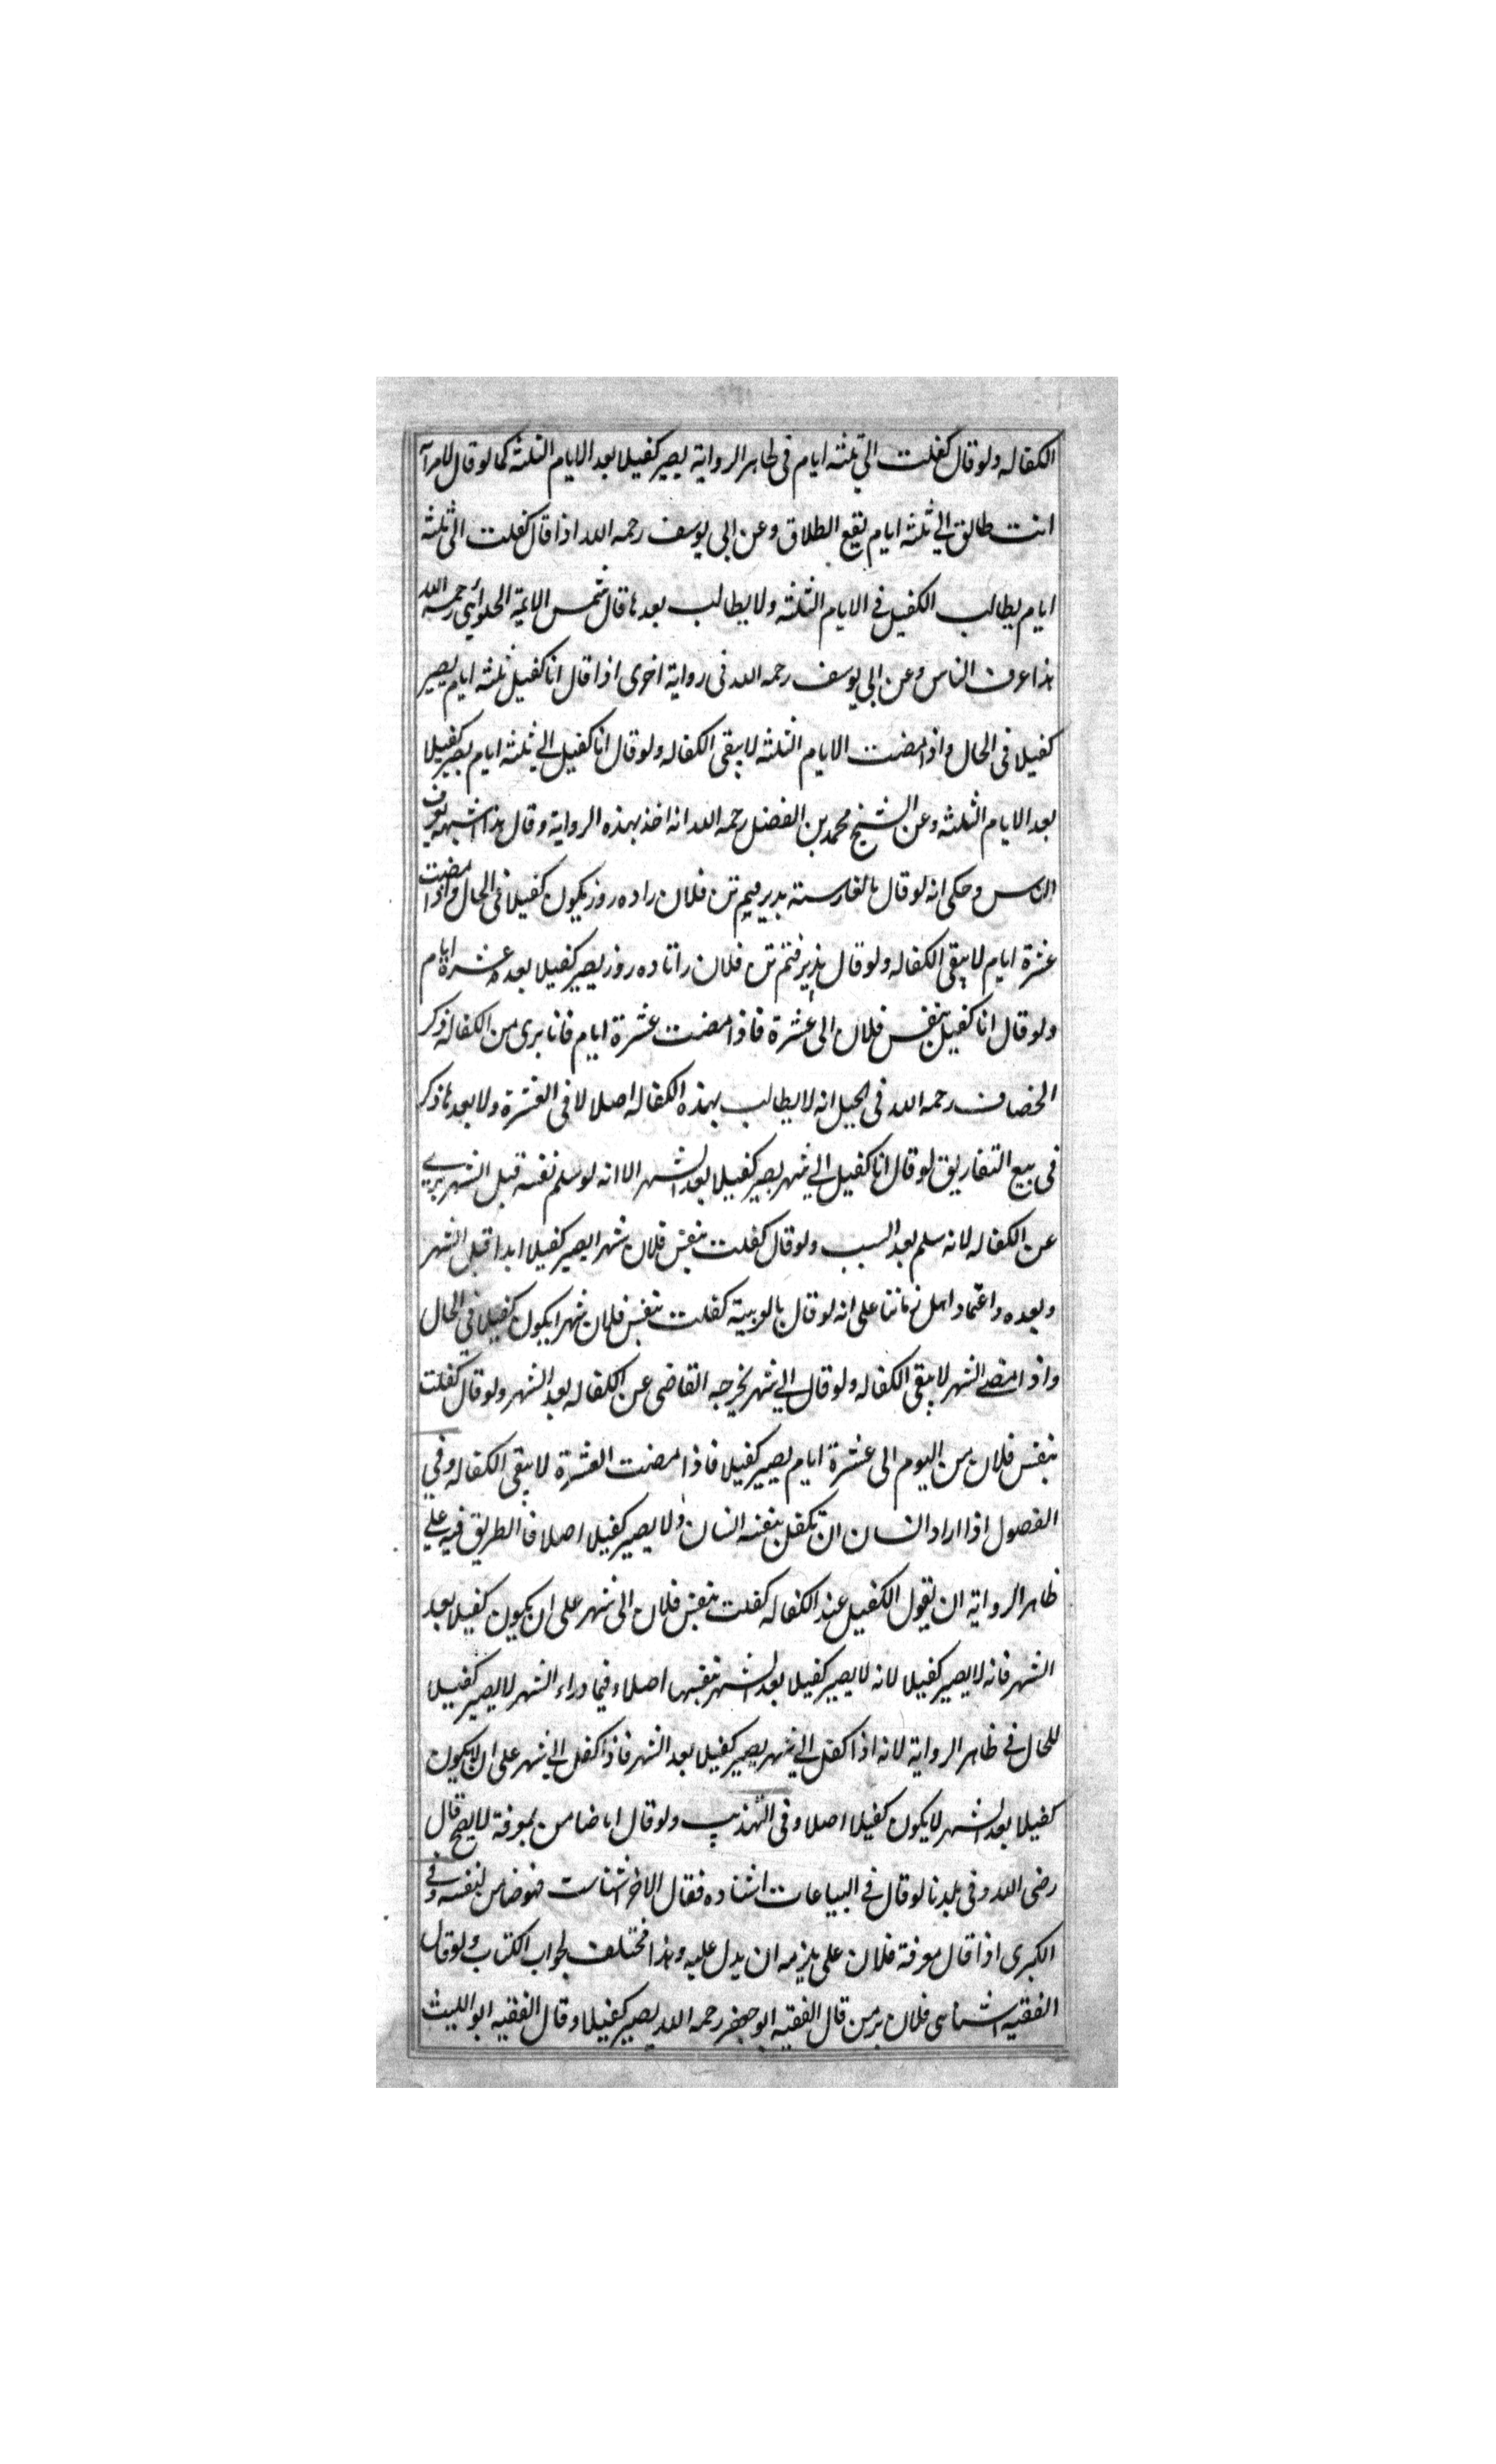 الكفاله ولو قال كفلت الى ثلثه ايام فى ظاهر الرواية يصير كفيلا بعد الايام الثلثه كما لو قال لامرأ
انت طالق الى ثلثه ايام يقع الطلاق وعن ابى يوسف رحمه الله اذا قال كفلت الى ثلثه
ايام يطالب الكفيل فى الايام الثلثه ولا يطالب بعدها قال شمس الايمة الحلوائى رحمه الله
هذا عرف الناس وعن ابى يوسف رحمه الله فى رواية اخرى اذا قال انا كفيل ثلثه ايام يصير
كفيلا فى الحال واذا مضت الايام الثلثه لا يبقى الكفاله ولو قال انا كفيل الى ثلثه ايام يصير كفيلا
بعد الايام الثلثه وعن الشيخ محمد بن الفضل رحمه الله انه اخذ بهذه الرواية وقال هذا اشبه بعرف
الناس وحكى انه لو قال بالفارسية پذيرفتم تن فلان را ده روز يكون كفيلا فى الحال واذا مضت
عشرة ايام لا يبقى الكفاله ولو قال پذيرفتم تن فلان را تا ده روز يصير كفيلا بعد عشرة ايام
ولو قال انا كفيل بنفس فلان الى عشرة فاذا مضت عشرة ايام فانا برى من الكفاله ذكر
الخصاف رحمه الله فى الحيل انه لا يطالب بهذه الكفاله اصلا لا فى العشرة ولا بعدها ذكر
فى بيع التفاريق لو قال انا كفيل الى شهر يصير كفيلا بعد الشهر الا انه لو سلم نفسه قبل الشهر برى
عن الكفاله لانه سلم بعد السبب ولو قال كفلت بنفس فلان شهرا يصير كفيلا ابدا قبل الشهر
وبعده واعتماد اهل زماننا على انه لو قال بالعربية كفلت بنفس فلان شهرا يكون كفيلا فى الحال
واذا مضى الشهر لا يبقى الكفاله ولو قال الى شهر يخرجه القاضى عن الكفاله بعد الشهر ولو قال كفلت
بنفس فلان من اليوم الى عشرة ايام يصير كفيلا فاذا مضت العشرة لا يبقى الكفاله وفى
الفصول اذا اراد انسان ان يكفل بنفس انسان ولا يصير كفيلا اصلا فالطريق فيه على
ظاهر الرواية ان يقول الكفيل عند الكفاله كفلت بنفس فلان الى شهر على ان يكون كفيلا بعد
الشهر فانه لا يصير كفيلا لانه لا يصير كفيلا بعد الشهر بنفسها اصلا وفيما وراء الشهر لا يصير كفيلا
للحال فى ظاهر الرواية لانه اذا كفل الى شهر يصير كفيلا بعد الشهر فاذا كفل الى شهر على ان لا يكون
كفيلا بعد الشهر لا يكون كفيلا اصلا وفى التهذيب ولو قال انا ضامن بمعرفة لا يصح قال
رضى الله وفى بلدنا لو قال فى البياعات اشناده فقال الاخر اشناست فهو ضامن لنفسه وفى
الكبرى اذا قال معرفة فلان على يلزمه ان يدل عليه وهذا مختلف لجواب الكتاب ولو قال
الفقيه اشناسى فلان بر من قال الفقيه ابو جعفر رحمه الله يصير كفيلا وقال الفقيه ابو الليث